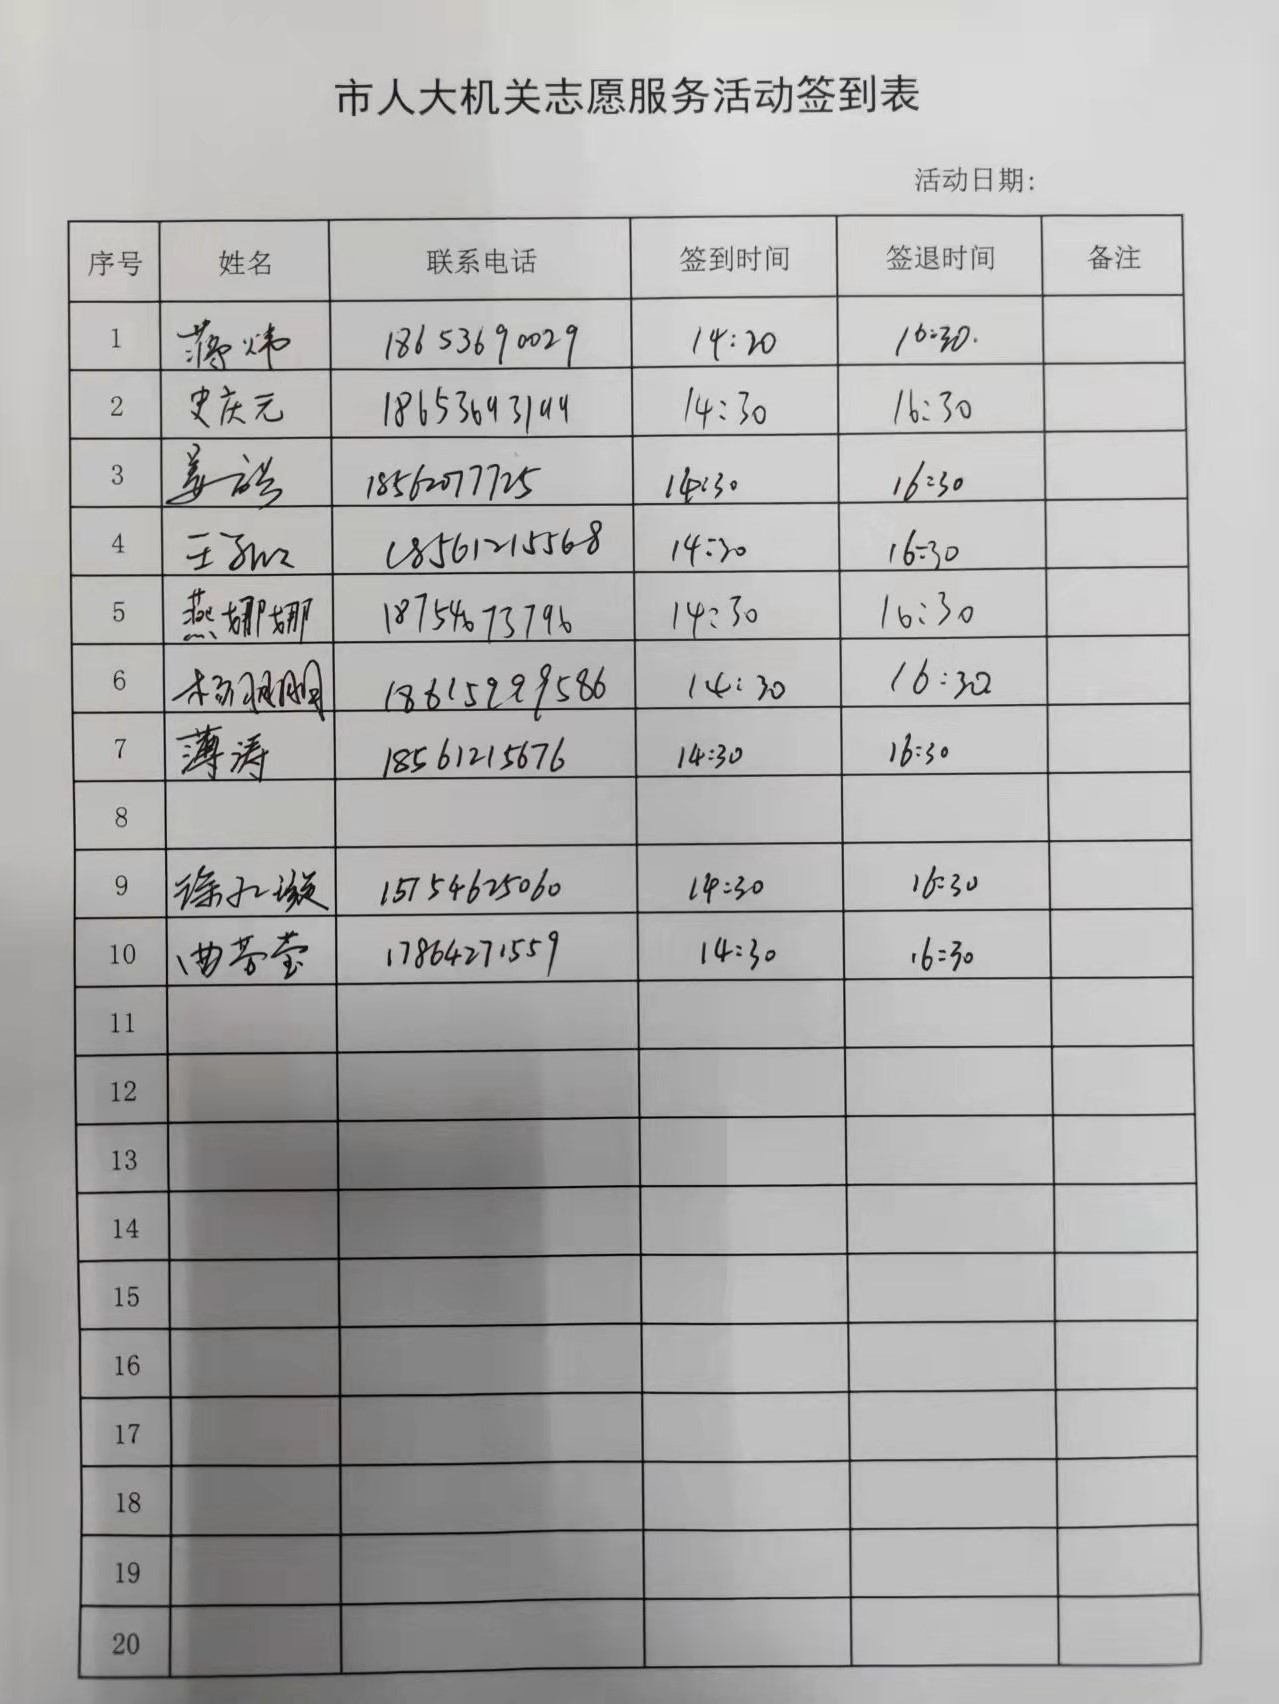 市人大机关志愿服务活动签到表
活动日期:
序号 姓名 联系电话 签到时间 签退时间 备注
1 蒋炜 18653690029 14:20 16:30.
2 史庆元 18653643144 14:30 16:30
3 姜 18562077725 14:30 16:30
4 王 18561215568 14:30 16:30
5 燕娜娜 18754673796 14:30 16:30
6 杨 18615999586 14:30 16:30
7 薄涛 18561215676 14:30 16:30
8
9 徐 15754625060 14:30 16:30
10 曲芳莹 17864271559 14:30 16:30
11
12
13
14
15
16
17
18
19
20